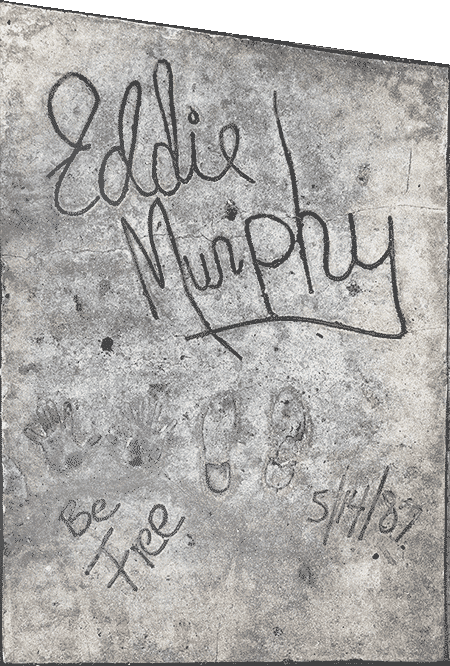 Eddie
Murphy
5/14/87
Be
Free